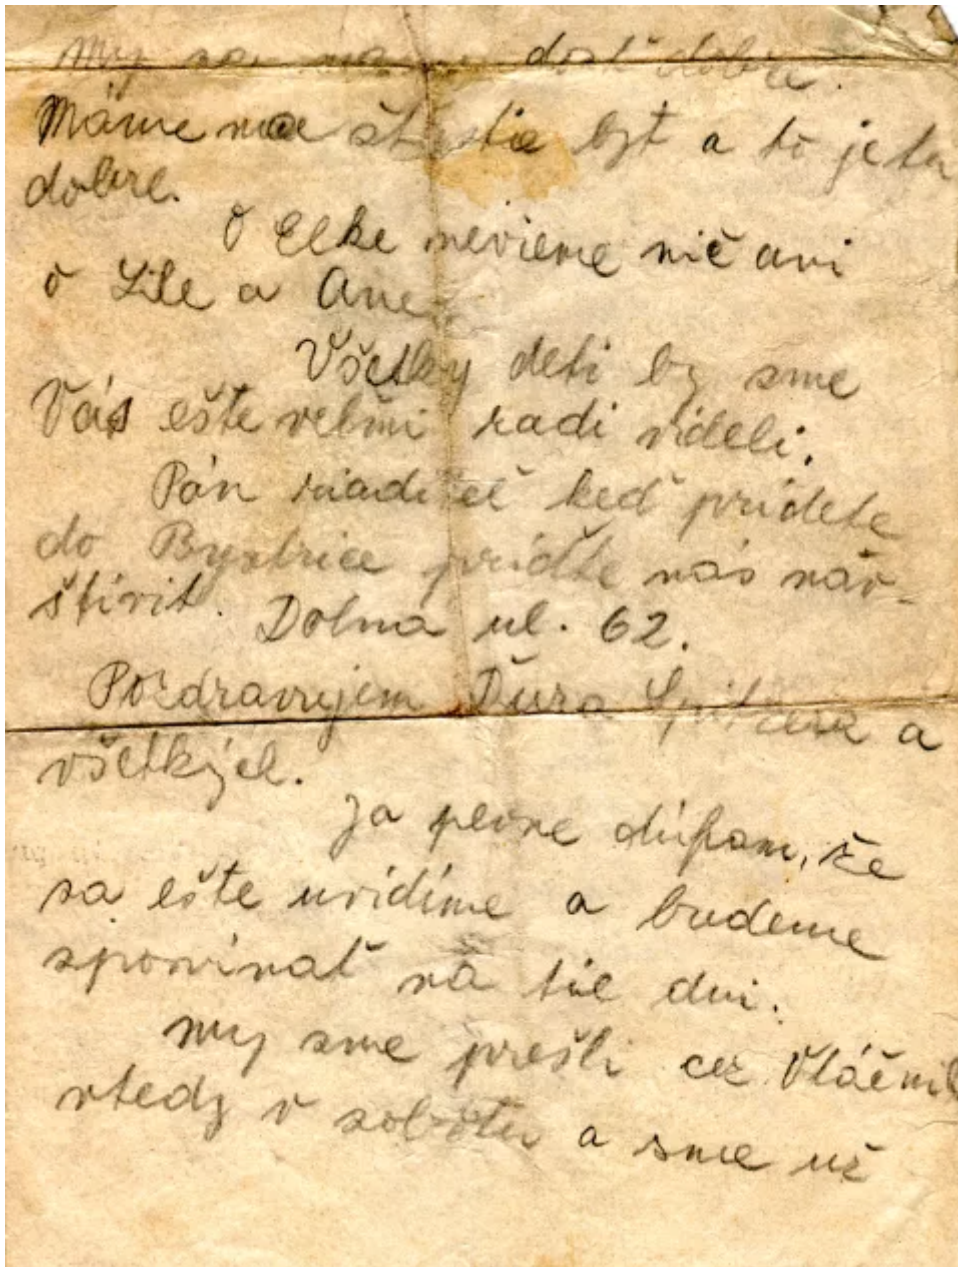 My sa máme dosť dobre.
Máme na šťastie byt a to je tu
dobre.
O Elke nevieme nič ani
o Lile a Ane
Všetky deti by sme
Vás ešte veľmi radi videli.
Pán riaditeľ keď prídete
do Bystrice príďte nás náv-
štíviť. Dolná ul. 62.
Pozdravujem Ďura Spitzera a
všetkých.
Ja pevne dúfam, že
sa ešte uvidíme a budeme
spomínať na tie dni.
My sme prešli cez
vtedy v sobotu a sme už